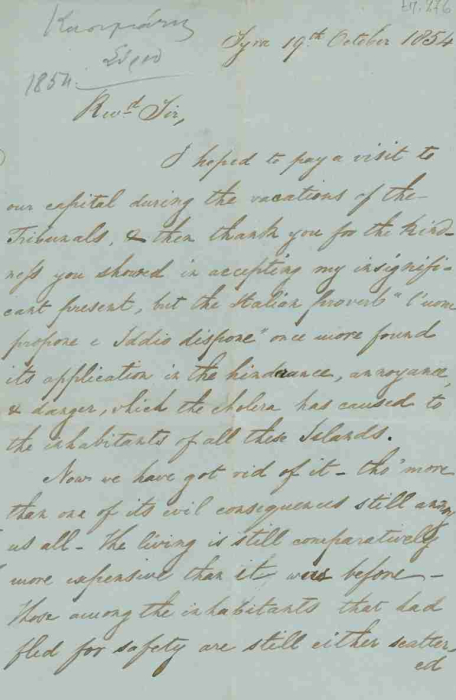 Syra 19th October 1854
1854.
Revd Sir,
I hoped to pay a visit to
our capital during the vacations of the
Tribunals, & then thank you for the kind-
ness you showed in accepting my insignifi-
cant present, but the Italian proverb "l'uom
propone e Iddio dispone" once more found
its application in the hinderance, annoyance,
& danger, which the cholera has caused to
the inhabitants of all these Islands.
Now we have got rid of it - tho' more
than one of its evil consequences still annoy
us all - The living is still comparatively
more expensive than it was before -
Those among the inhabitants that had
fled for safety are still either scatter-
ed